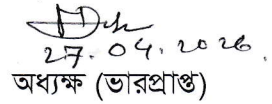 27.04.2026
অধ্যক্ষ (ভারপ্রাপ্ত)